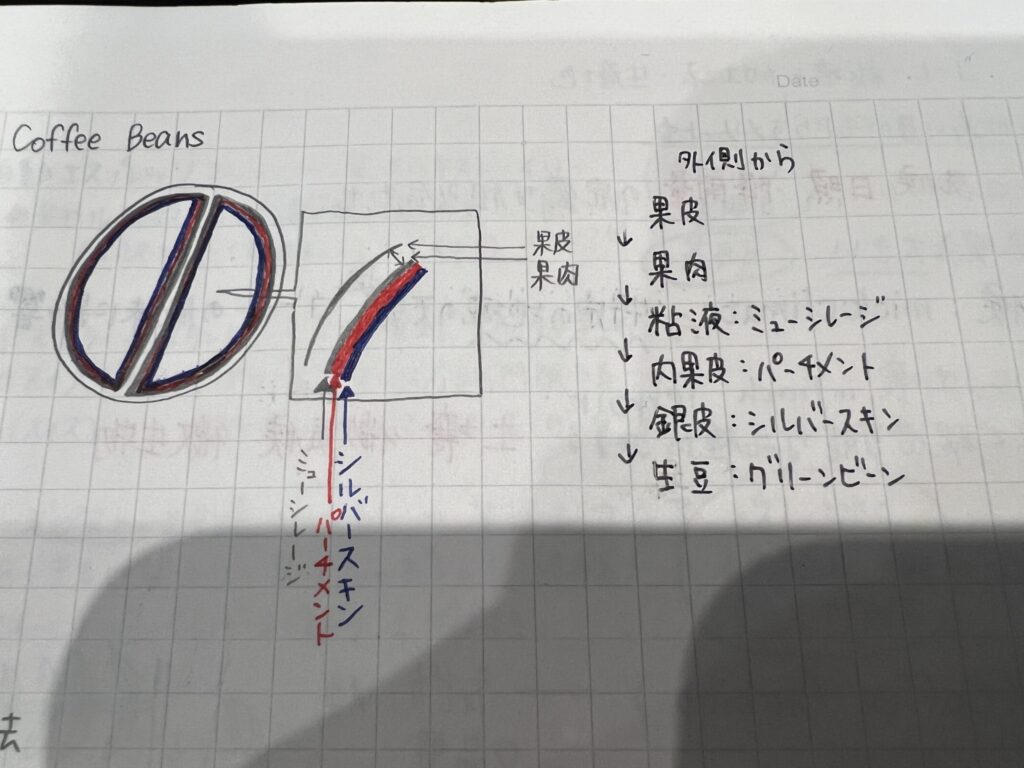 Date
Coffee Beans
果皮
果肉
ミューシレージ
パーチメント
シルバースキン
外側から
果皮
↓ 果肉
↓ 粘液:ミューシレージ
↓ 内果皮:パーチメント
↓ 銀皮:シルバースキン
↓ 生豆:グリーンビーン
法